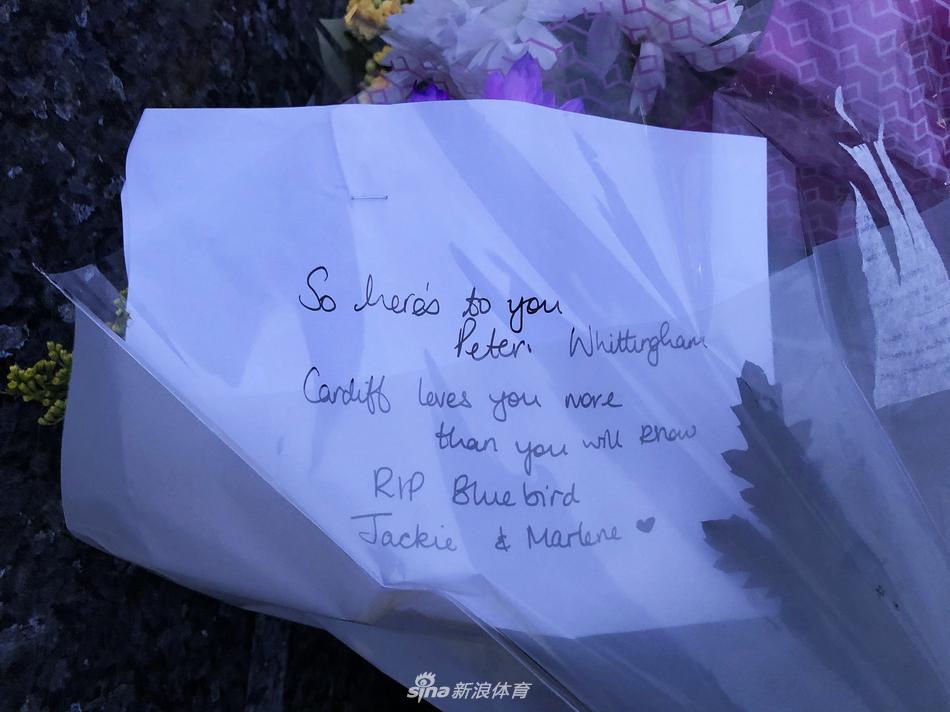 So here's to you
Peter. Whittingham
Cardiff loves you more
than you will know
RIP Bluebird
Jackie & Marlene ♥
sina新浪体育